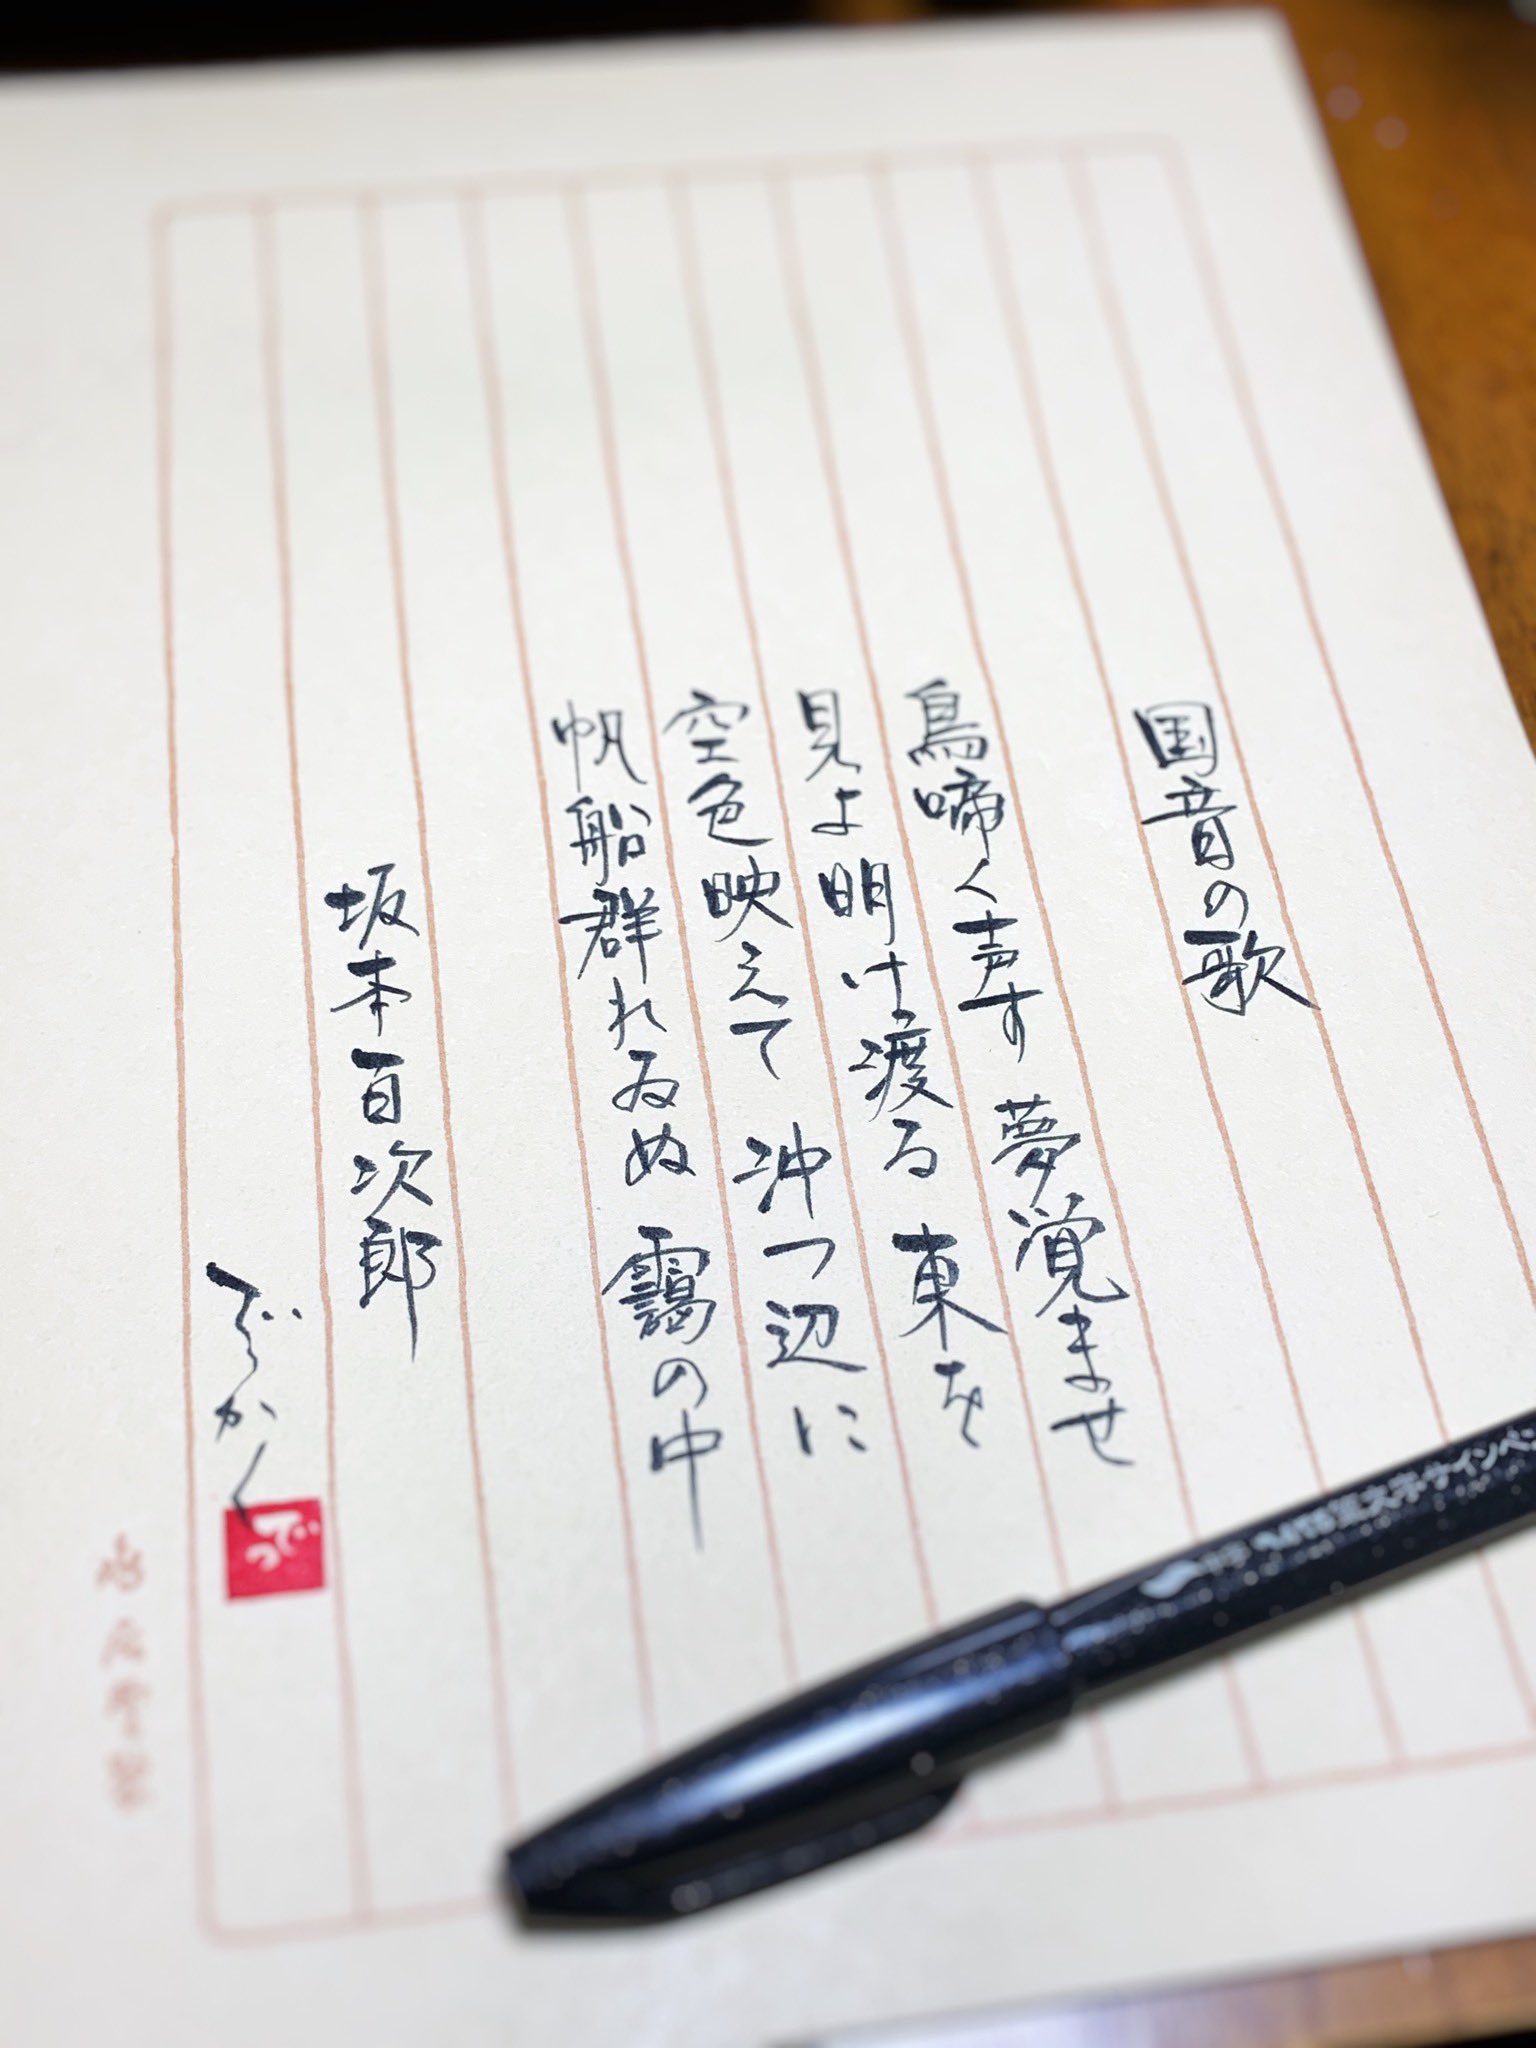 国音の歌
鳥啼く声す 夢覚ませ
見よ明け渡る 東を
空色映えて 沖つ辺に
帆船群れゐぬ 靄の中
坂本百次郎
でらかく
でっ